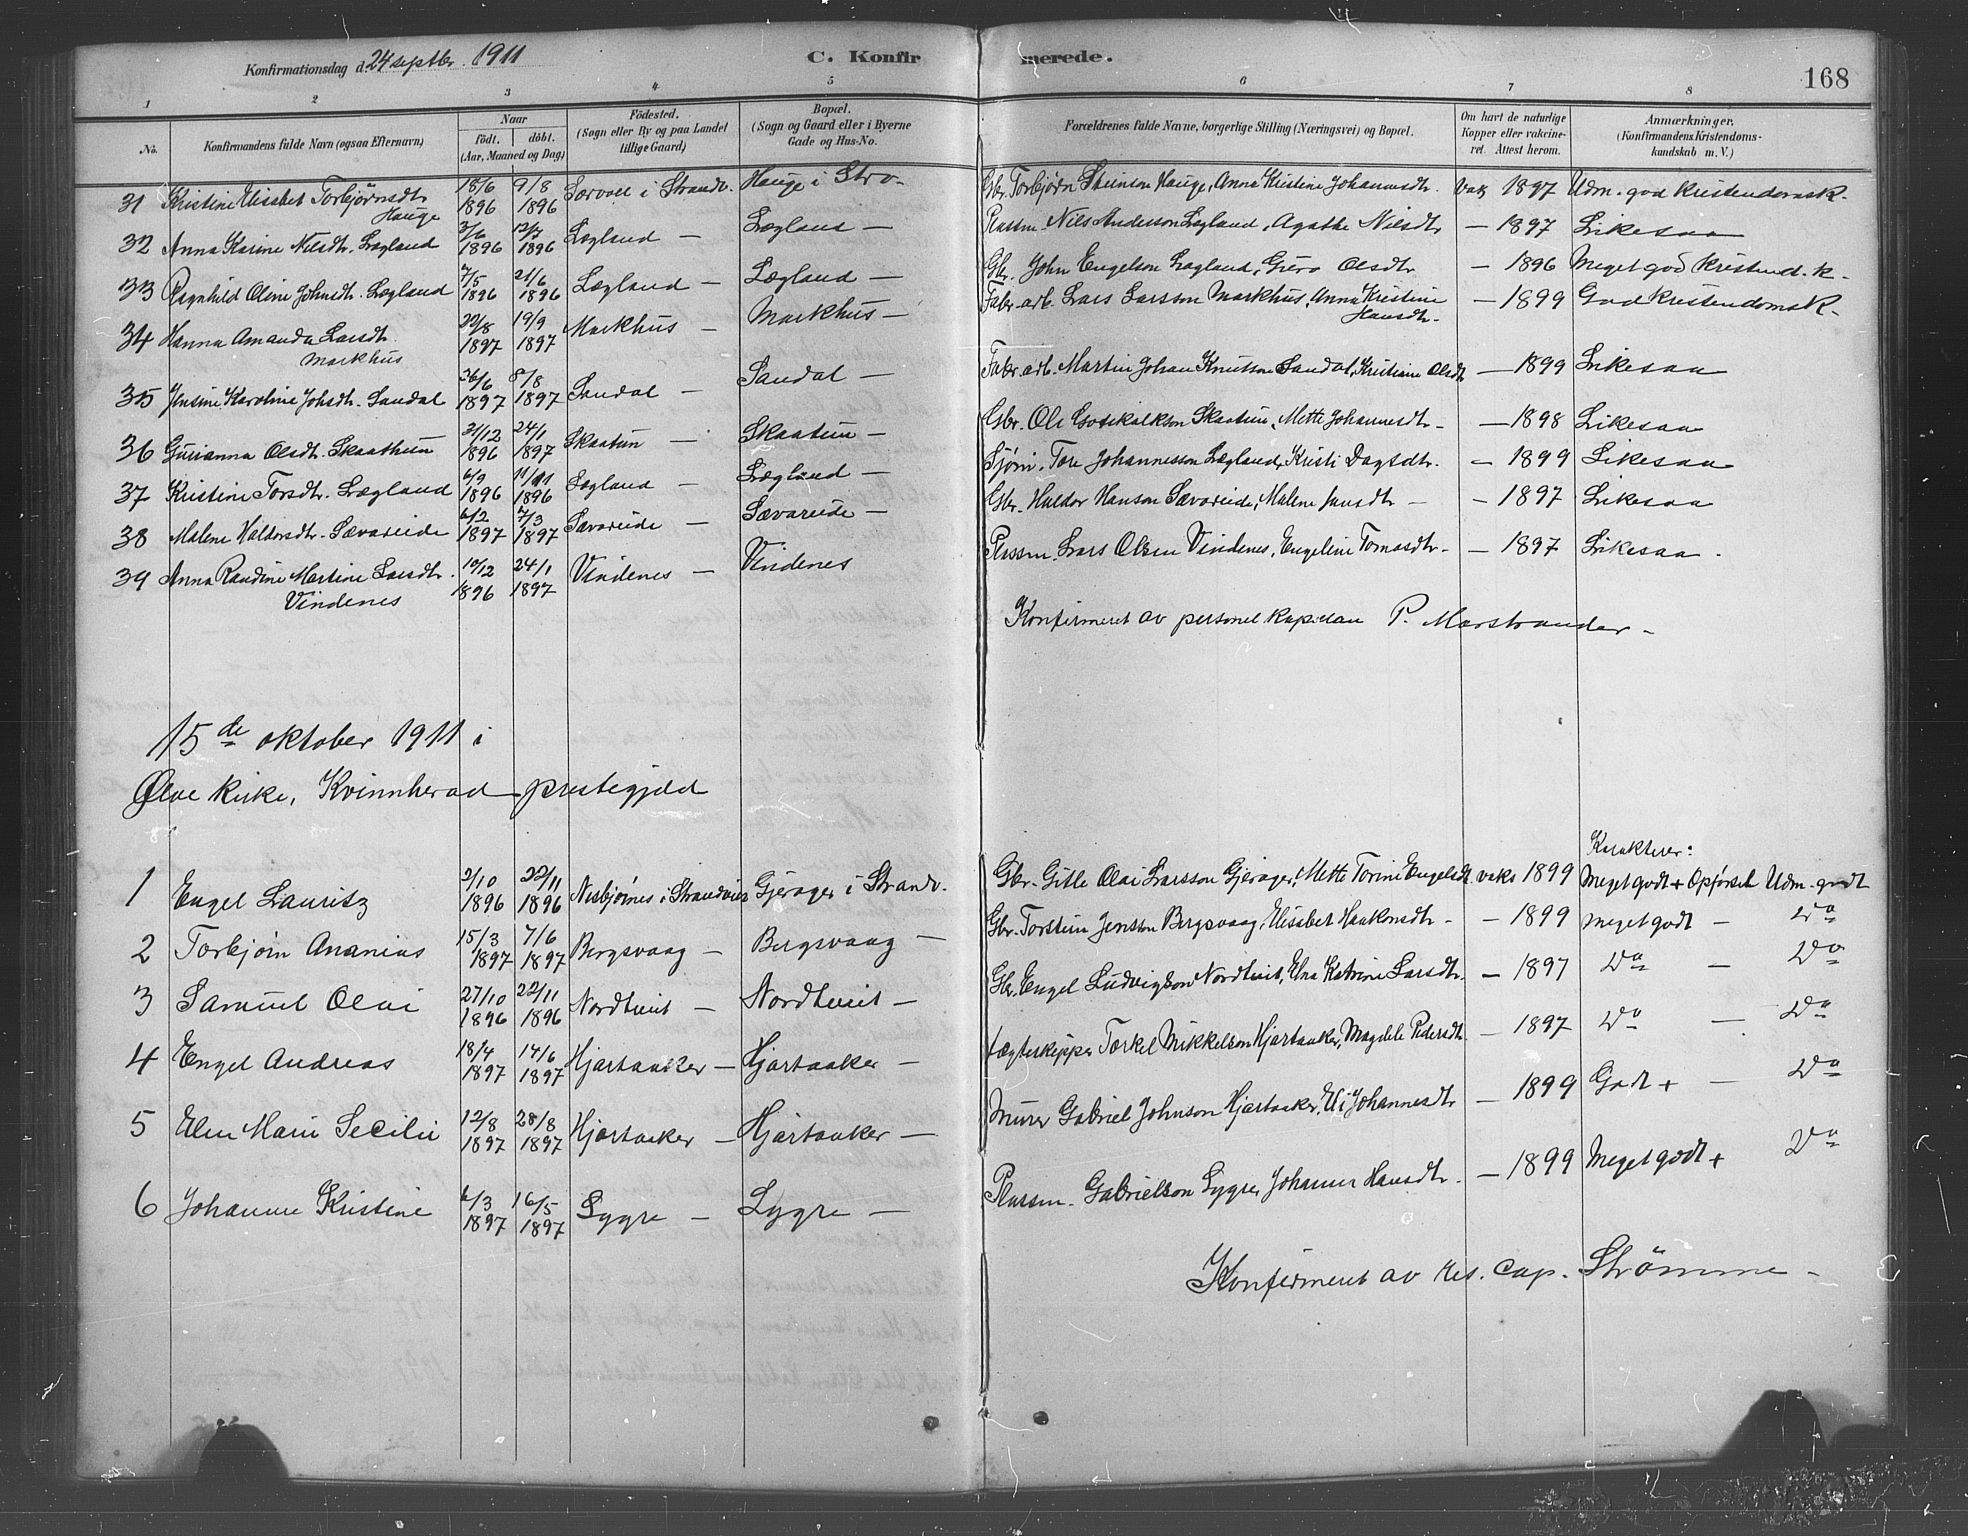 Konfirmationsdag d. 24 septbr. 1911 C. Konfirmerede. 168
1 2 3 4 5 6 7 8
No. Konfirmandens fulde Navn (ogsaa Efternavn) Naar født. døbt. (Aar, Maaned og Dag) Fødested. (Sogn eller By og paa Landet tillige Gaard) Bopæl. (Sogn og Gaard eller i Byerne Gade og Hus-No. Forældrenes fulde Navne, borgerlige Stilling (Næringsvei) og Bopæl. Om havt de naturlige Kopper eller vakcineret. Attest herom. Anmærkninger. (Konfirmandens Kristendomskundskab m. V.)
31 Kristine Elisabet Torbjørnsdtr. Hauge 18/6 1896 9/8 1896 i Strandv. Hauge i Gbr. Torbjørn Steinson Hauge, Anna Kristine Johannesdtr. vak 1897 Udm. god kristendomsk.
32 Anna Karine Nilsdtr. Lægland 3/6 1896 12/7 1896 Lægland — Lægland — Plassm Nils Anderson Lægland, Agathe Nilsdtr — 1897 Likesaa
33 Ragnhild Oline Johnsdtr. Lægland 7/5 1896 21/6 1896 Lægland — Lægland — Gbr. John Engelson Lægland, Guro Olsdtr — 1896 Meget god kristend.k.
34 Hanna Amanda Larsdtr. Markhus 22/8 1897 19/9 1897 Markhus — Markhus — Fabr.arb. Lars Larsson Markhus, Anna Kristine Hansdtr. — 1899 God kristendomsk.
35 Jensine Karoline Johsdtr. Sandal 26/6 1897 8/8 1897 Sandal — Sandal — Fabr.arb. Martin Johan Knutson Sandal, Kristiane Olsdtr — 1899 Likesaa
36 Gurianna Olsdtr. Skaathun 31/12 1896 24/1 1897 Skaatun — Skaatun — Gbr. Ole Gotskalkson Skaatun, Mette Johannesdtr — 1898 Likesaa
37 Kristine Torsdtr. Lægland 6/9 1896 11/11 1896 Lægland — Lægland — Sjøm. Tore Johannesson Lægland, Kristi Dagsdtr. — 1899 Likesaa
38 Malene Haldorsdtr. Sævareide 6/2 1897 7/3 1897 Sævareide — Sævareide — Gbr. Haldor Hanson Sævareide, Malene Jansdtr — — 1897 Likesaa
39 Anna Randine Martine Larsdtr. Vindenes 10/12 1896 24/1 1897 Vindenes — Vindenes Plassm. Lars Olsen Vindenes, Engeline Tomasdtr — 1897 Likesaa.
Konfirmeret av personel kapellan P. Marstrander —
15de oktober 1911 i
Ølve kirke, Kvinnherad prestegjeld
Karakterer:
1 Engel Lauritz 2/10 1896 22/11 1896 Nesbjørnes i Strandvik Gjerager i Strandv. Gbr. Gitle Olai Larsson Gjerager, Mette Torine Engelsdt. vaks 1899 Meget godt + Opførsel Udm. godt
2 Torbjørn Ananias 15/3 1897 7/6 1897 Bergsvaag — Bergsvaag — Gbr. Torstein Jenson Bergsvaag, Elisabet Haakonsdtr — — 1899 meget godt — Do
3 Samuel Olai 27/10 1896 22/11 1896 Nordtveit — Nordtveit — Gbr. Engel Ludvigson Nordtveit, Elna Katrine Larsdtr. — 1897 Do — Do
4 Engel Andreas 18/4 1897 14/6 1897 Hjartaaker — Hjartaaker — Jægteskipper Torkel Mikkelson Hjartaaker, Magdele Pedersdtr — 1897 Do — Do
5 Elen Marie Secilie 12/8 1897 28/8 1897 Hjartaaker — Hjartaaker — Murer Gabriel Johnson Hjartaaker, Eli Johannesdtr — 1899 Godt + — Do
6 Johanne Kristine 6/3 1897 16/5 1897 Lygre — Lygre — Plassm. Gabrielson Lygre, Johanne Hansdtr. — 1899 Meget godt + Do
Konfirmeret av res. cap. Strømme —